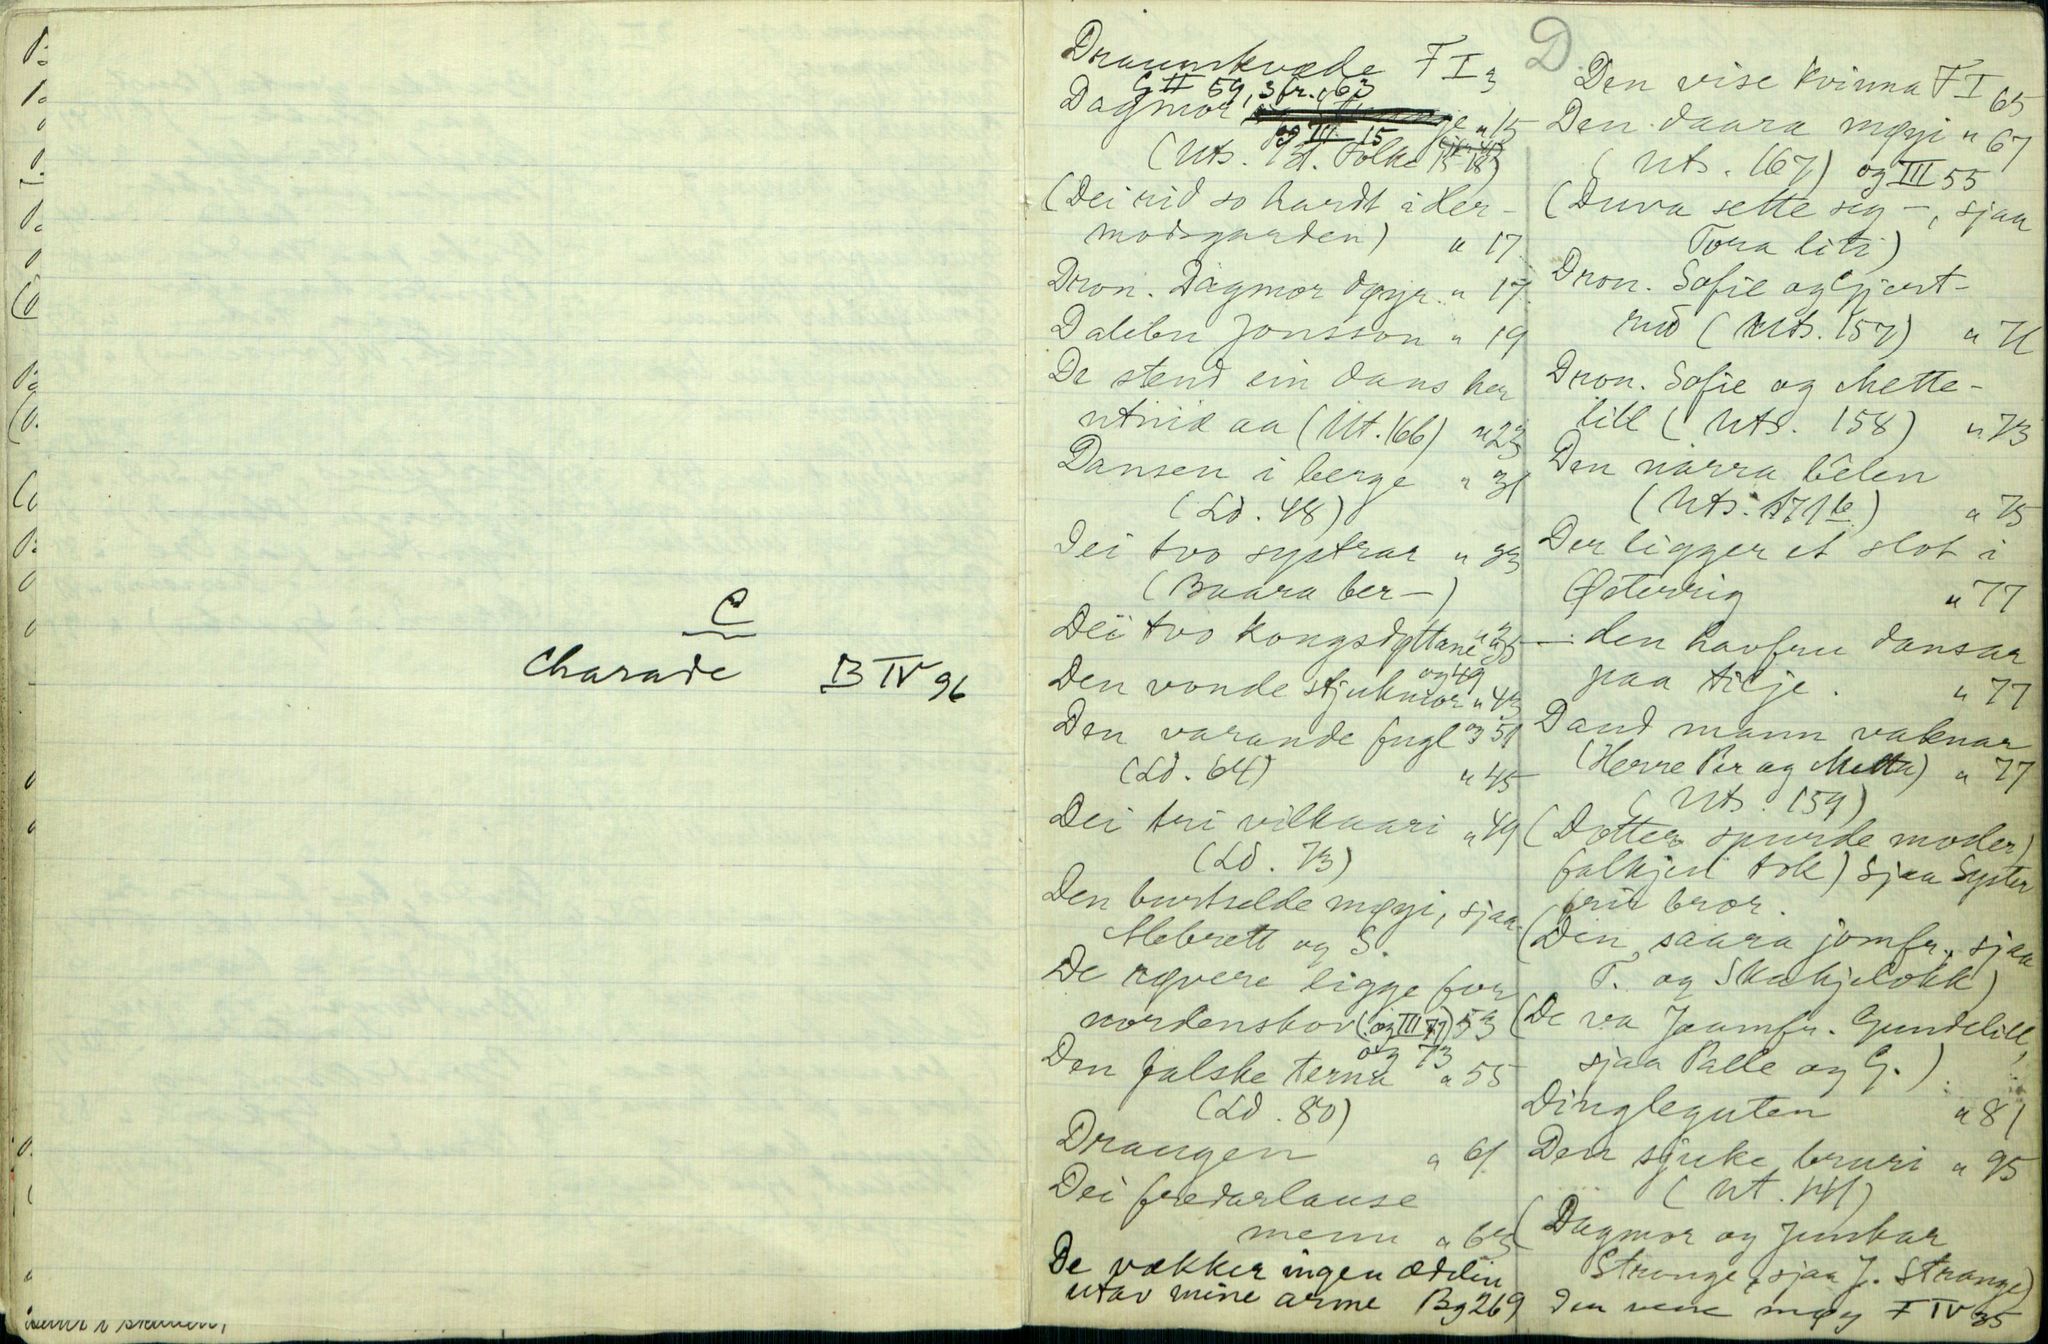 C
Charade B IV 96
D
Draumkvæde F I 3
G II 59, 3 fr. 63
Dagmor " 15
og III 15
(Uts. Folke
(Dei rid so hardt i Her-
modsgarden) " 17
Dron. Dagmor døyr " 17
Dalebu Jonsson " 19
De stend ein dans her
utmed aa (Ut. 166) " 23
Dansen i berge " 31
(Ld. 48)
Dei tvo systrar " 33
(Baara ber —)
Dei tvo kongsdøttane " 35
og 49
Den vonde stjukmor " 43
Den varande fugl og 51
(Ld. 64) " 45
Dei tri vilkaari " 49
(Ld. 73)
Den burtselde møyi, sjaa
Alebrett og S.
De røvere ligge for
nordenskov (og III 79) 53
og 73
Den falske terna " 55
(Ld. 80)
Draugen " 61
Dei fredarlause
menn " 63
De vækker ingen ædelin
utav mine arme Bg 269
Den vise kvinna F I 65
Den daara møyi " 67
(Uts. 167) og III 55
(Duva sette seg —, sjaa
Tora liti)
Dron. Sofie og Gjert-
rud (Uts. 157) " 71
Dron. Sofie og Mette-
lill (Uts. 158) " 73
Den narra bêlen
(Uts. 171 b) " 75
Der ligger et slot i
Østerrig " 77
— den havfru dansar
paa tilje. " 77
Daud mann vaknar
(Herre Per og Metta) " 77
(Uts. 159)
(Dotter spurde moder)
falkjen tok) sjaa Syster
frir bror.
(Din saara jomfr., sjaa
T. og Skakjelokk)
(De va Jaamfr. Gundelill,
sjaa Palle og G.)
Dingleguten " 81
Den sjuke bruri " 95
(Ut. 141)
(Dagmor og Junkar
Strange, sjaa J. Strange)
Den vene møy F IV 35